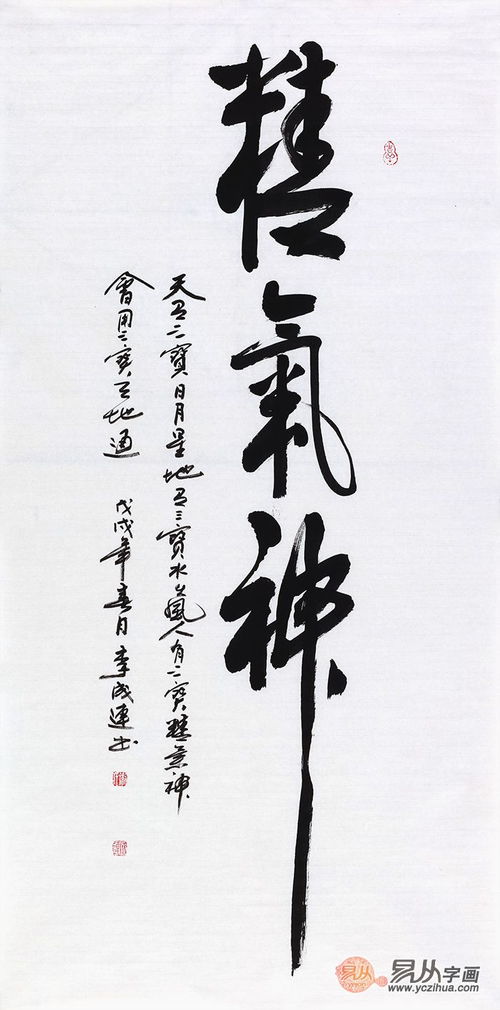 精氣神
天有三寶日月星地有三寶水火風人有三寶精氣神
會用三寶天地通 戊戌年春月李成連书
易从 易从字画
www.yczihua.com